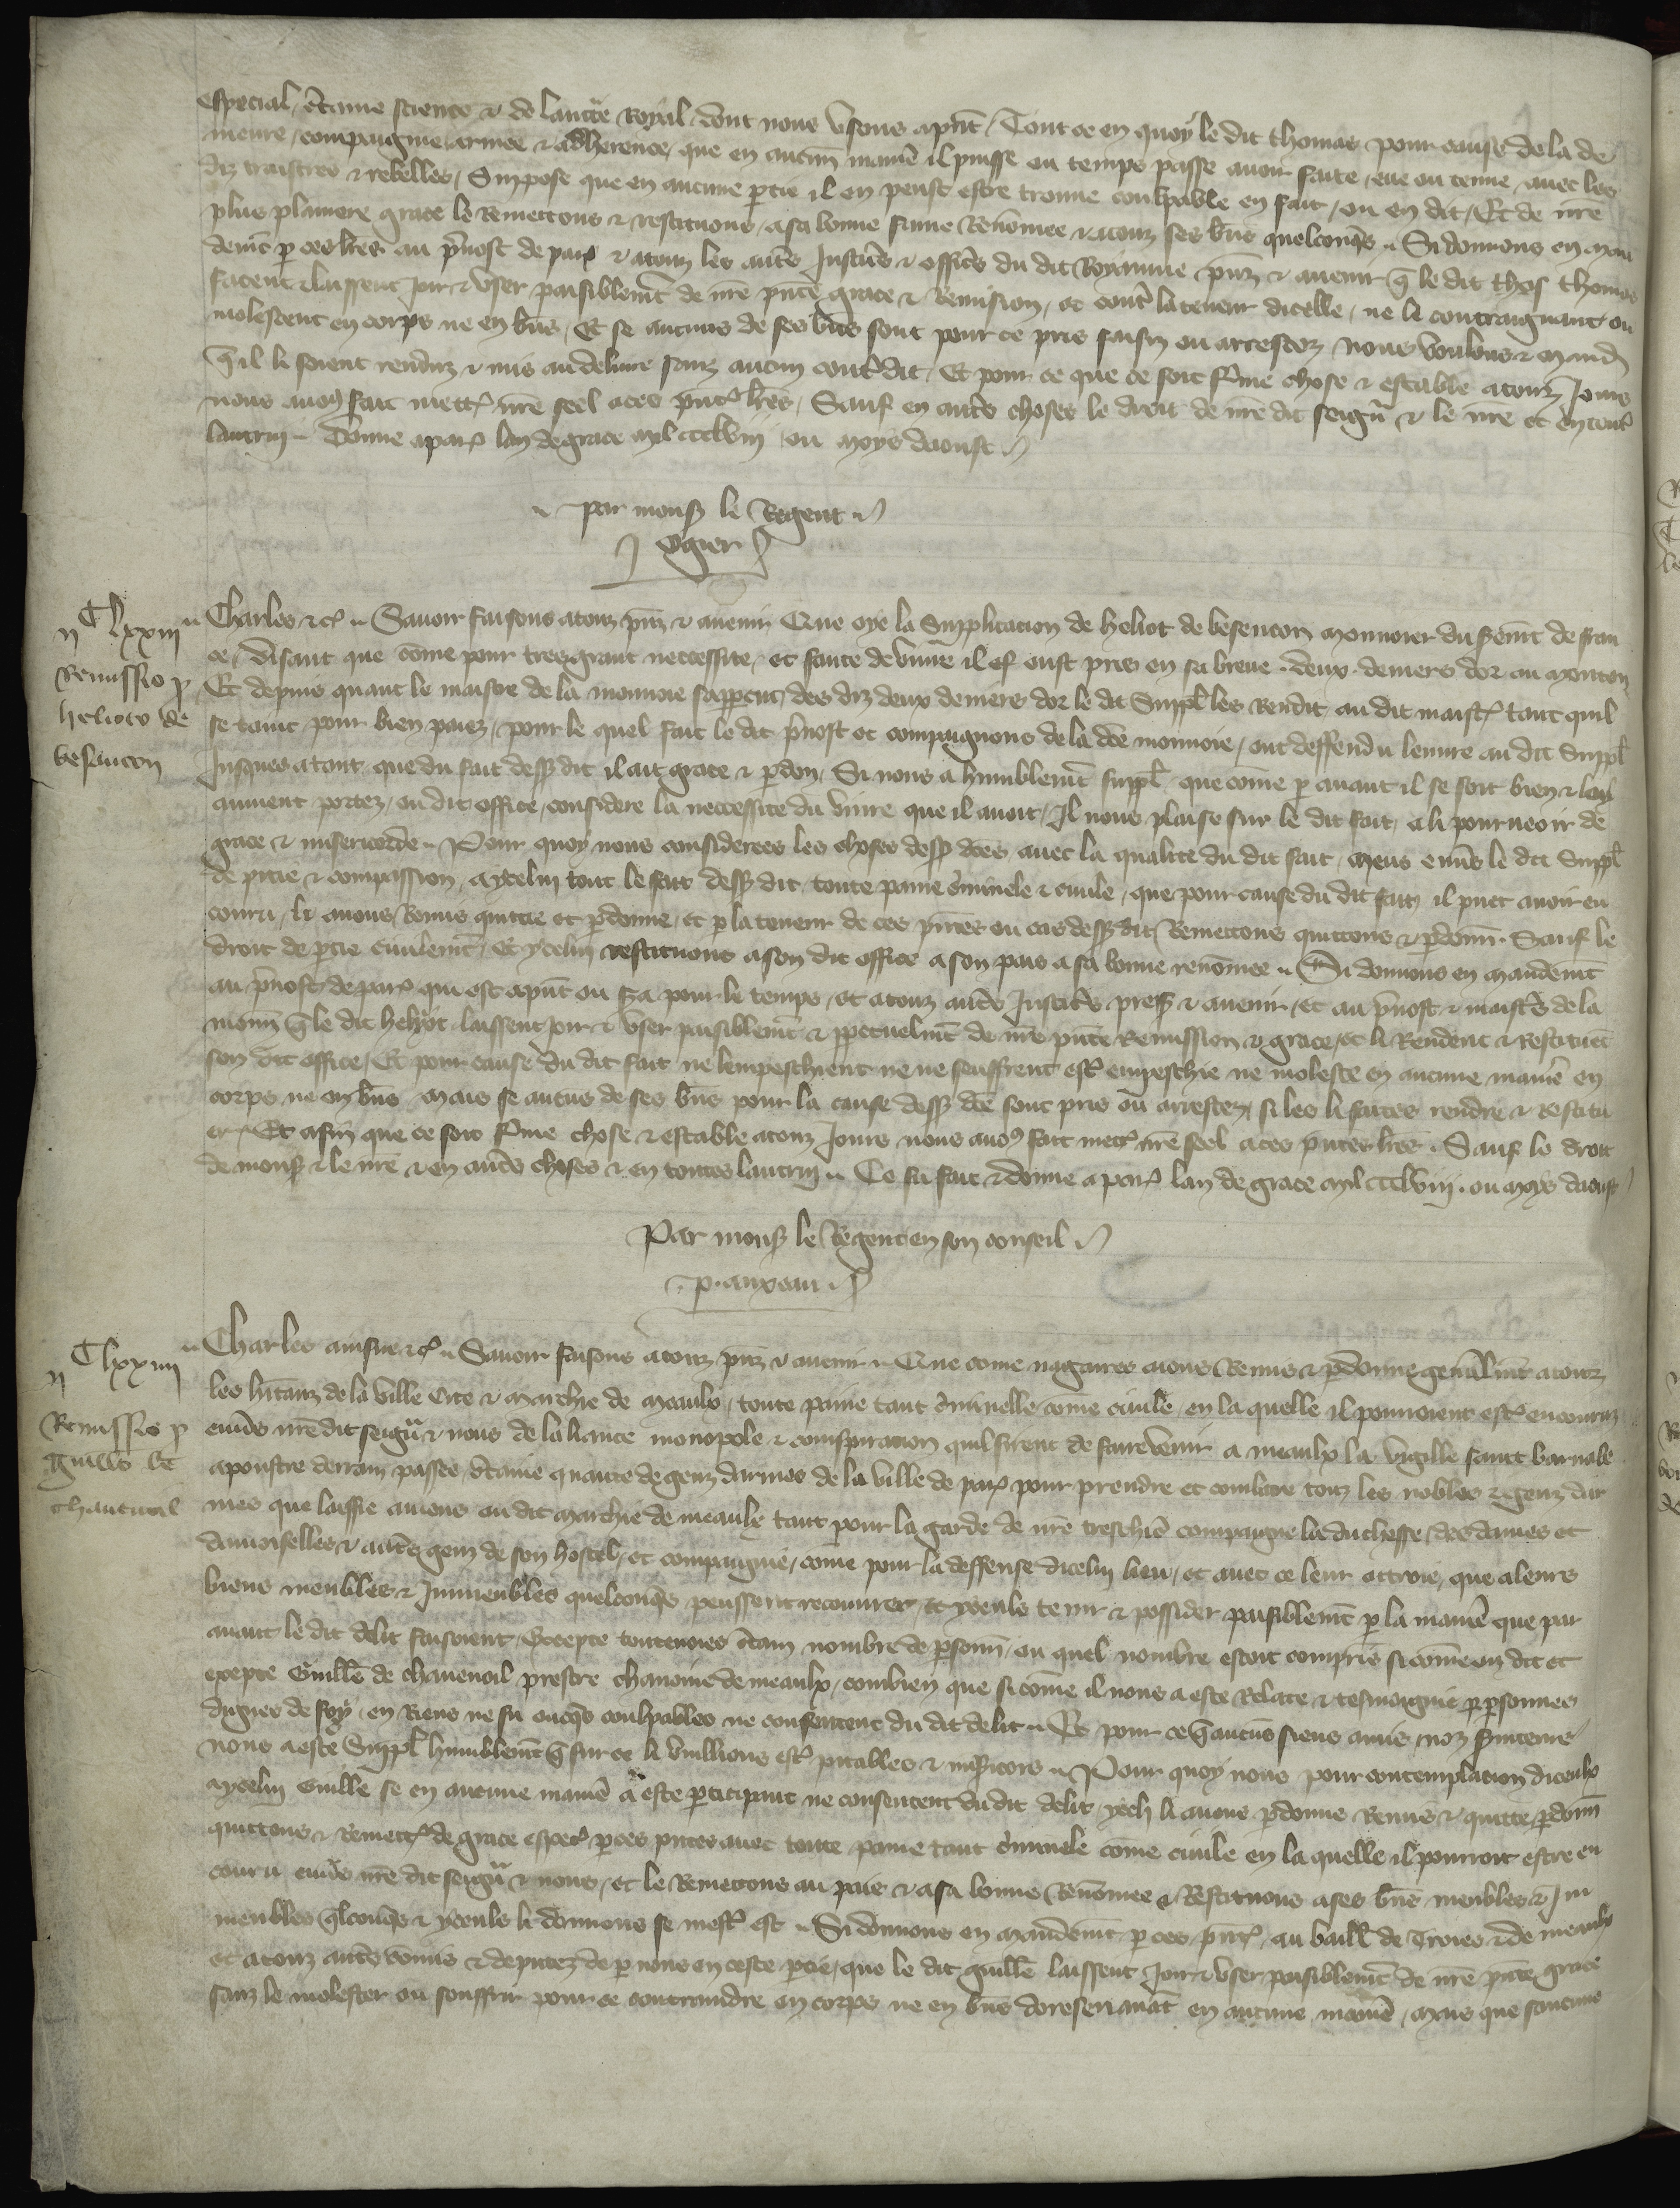 especial, c̃taine science & de lauct̃e Royal dont nous vsons ap̃nt. Tout ce en quoy le dit thomas pour cause de la de
meure, compaignie, armee & adherence, que en aucun̄ manie͂ il puisse ou temps passe auoir faite, eue ou tenue, auec les
diz traistres & rebelles, Suppose que en aucune p̱tie il en peust estre trouue coulpable en fait, ou en dit, Et de nr̃e
plus planiere grace le Remettons & restituons, a sa bonne fame Renōmee & a touz ses bn̄s quelconq̃s. Si donnons en man
demēt p̱ ces lr̃es au p̃uost de par̃ & a touz les autr̃s Justic̃s & offic̃s du dit Royaume p̃nz & auenir q̃ le dit thos thomas
facent & laissent Joir & vser paisiblemēt de nr̃e p̃nte grace & Remission, et cont̃ la teneur dicelle, ne le contraignent ou
molestent en corps ne en bn̄s, Et se aucuns de ses bn̄s sont pour ce pris saisiz ou arrestez nous voulons & mand̃
q̃ il li soient renduz & mis au deliure sanz aucun cont̃dit, Et pour ce que ce soit ferme chose & estable a touz Jours
nous auons fait mett̃ nr̃e seel a ces p̃nt̃ lr̃es, Sauf en autr̃s choses le droit de nr̃e dit seign̄r & le nr̃e et en tout̃
lautruy. Donne a par̃ lan de grace mil ccclviij ou moys daoust
par mons̃ le Regent
Ogier
Clxxiij
Remissio p̱
helioto de
besancon
Charles &c̃. Sauoir faisons a touz p̃nz & auenir Que oye la Supplicacion de heliot de besencon monnoier du serem̃t de fran
ce, disant que cōme pour tres grant neccessite, et faute de viure il eust pris en sa breue deux deniers dor au mouton
Et depuis quant le maistre de la monnoie sappercut des diz deux deniers dor le dit Suppl̃ les Rendit au dit maist̃ tant quil
se tint pour bien paiez, pour le quel fait le dit p̃uost et compaignons de la dc̃e monnoie, ont deffendu leuure au dit Suppl̃
Jusques a tant que du fait dess̃ dit il ait grace & p̱don, Si nous a humblemēt suppl̃ que cōme p̱ auant il se soit bien & loy
aument portez, ou dit office, considere la neccessite du viure que il auoit, Il nous plaise sur le dit fait, a li pourueoir de
grace & misericorde. Pour quoy nous considerees les choses dess̃ dc̃es, auec la qualite du dit fait, meus enu̇s le dit Suppl̃
de pitie & compassion, a ycelui tout le fait dess̃ dit, toute paine c̃minele & ciuile, que pour cause du dit fait il puet auoir en
couru, li auons Remis quittie et p̱donne, et p̱ la teneur de ces p̃ntes ou cas dess̃ dit Remettons quittons & p̱donn̄. Sauf le
droit de p̱tie ciuilemēt, Et ycelui restituons a son dit office a son pais a sa bonne renōmee. Si donnons en mandemēt
au p̃uost de par̃ qui est ap̃nt ou sera pour le temps, et a touz autr̃s Justic̃s pres̃ & auenir, et au p̃uost & maistr̃s de la
monn̄ q̃ le dit helyot laissent Joir & vser paisiblemēt & p̱petuelmēt de nr̃e p̃nte Remission & grace, et li Rendent & Restituēt
son dit office, Et pour cause du dit fait ne lempeschient ne ne seuffrent est̃ empeschie ne moleste en aucune manie͂ en
corps ne en bn̄s Mais se aucuns de ses bn̄s pour la cause dess̃ dc̃e sont pris ou arrestez, si les li facēs rendre & Restitu
er. Et afin que ce soit ferme chose & estable a touz Jours nous auons fait mett̃ nr̃e seel a ces p̃ntes lr̃es. Sauf le droit
de mons̃ & le nr̃e & en autr̃s choses & en toutes lautruy. Ce fu fait & donne a par̃ lan de grace mil ccclviij. ou mois daoust
Par mons̃ le Regent en son conseil
p. anxeau
Clxxiiij
Remissio p̱
guill̃o de
chauenoil
Charles ainsne &c̃. Sauoir faisons a touz p̃nz & auenir. Que cōme nagaires aions Remis & p̱donne gen̄alm̃t a touz
les hĩtanz de la ville Cite & Marchie de Meaulx, toute paine tant c̃minelle cōme ciuile, en la quelle il pourroient est̃ encouruz
enu̇s nr̃e dit seign̄r & nous de laliance monopole & conspiracion quil firent de faire venir a meaulx la vigille saint barnabe
apoustre derrain passee, c̃taine quantite de genz darmes de la ville de par̃ pour prendre et combatre touz les nobles & genz dar
mes que laissie auions ou dit marchie de meaulx tant pour la garde de nr̃e treschie͂ compaigne la duchesse, des dames et
damoiselles & autr̃s genz de son hostel, et compaignie, cōme pour la deffense dicelui lieu, et auec ce leur ottroie, que a leurs
biens meubles & Jmmeubles quelconq̃s peussent recouurer, & yceuls tenir & possider paisiblemēt p̱ la manie͂ que par
auant le dit delit faisoient, Excepte toutesuoies c̃tain nombre de p̱sonn̄, ou quel nombre estoit compris si cōme on dit et
excepte Guill̃e de chauenoil prestre chanoine de meaulx, combien que si cōme il nous a este Relate & tesmoignie p̱ p̱sonnes
dignes de foy, en Riens ne fu oncq̃s coulpables ne consentent du dit delit. Et pour ce q̃ aucuns siens amis, noz seruiteurs
nous a este Suppl̃ humblemēt q̃ sur ce li vueillions est̃ pitables & mis̃icors. Pour quoy nous pour contemplacion diceulx
a ycelui Guill̃e se en aucune manie͂ a este p̱ticipant ne consentent du dit delit yceli li auons p̱donne Remis & quitte p̱donn̄
quittons & Remett̃ de grace especĩ p̱ ces p̃ntes auec toute paine tant c̃minele cōme ciuile en la quelle il pourroit estre en
couru enu̇s nr̃e dit seign̄r & nous, et le Remettons au pais & a sa bonne Renōmee & Restituons a ses bn̄s meubles & Jm
meubles q̃lconq̃s & yceuls li donnons se mest̃ est. Si donnons en mandemēt p̱ ces p̃nt̃ au baill̃ de Troies & de meaulx
et a touz autr̃s cōmis & deputez de p̱ nous en ceste p̱tie, que le dit guill̃e laissent Joir & vser paisiblemēt de nr̃e p̃nte grace
sanz le molester ou souffrir pour ce contraindre en corps ne en bn̄s doresenauāt en aucune manie͂, Mais que saucuns